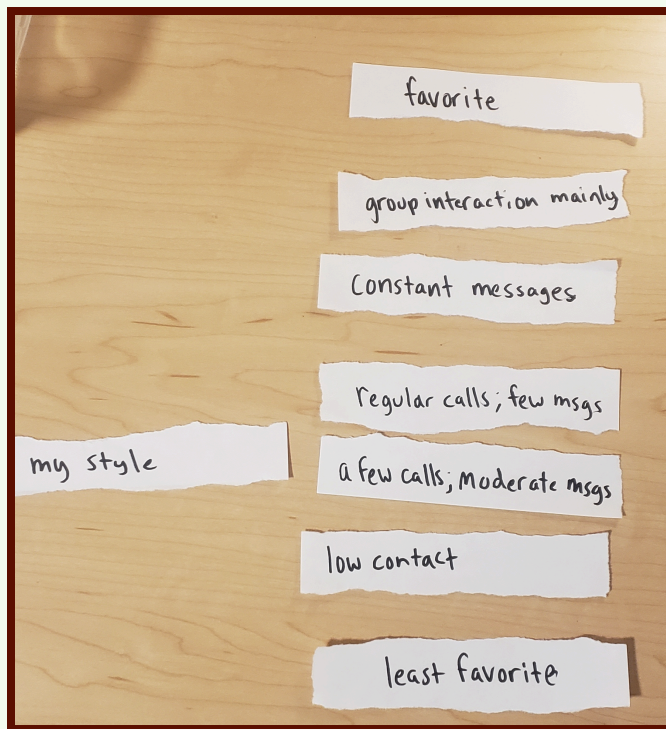 favorite
group interaction mainly
Constant messages
regular calls; few msgs
my style
a few calls; Moderate msgs
low contact
least favorite